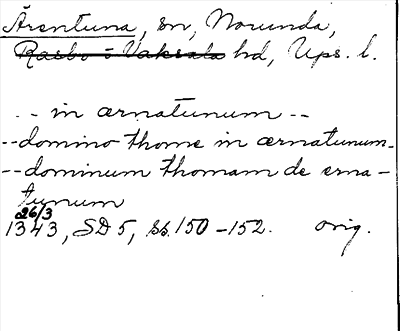 Ärentuna, sn, Norunda,
Rasbo o Vaksala hd, Ups. l.
-- in ærnatunum --
--domino thome in ærnatunum-
--dominum thomam de erna-
tunum
26/3
1343, SD 5, ss. 150-152. orig.